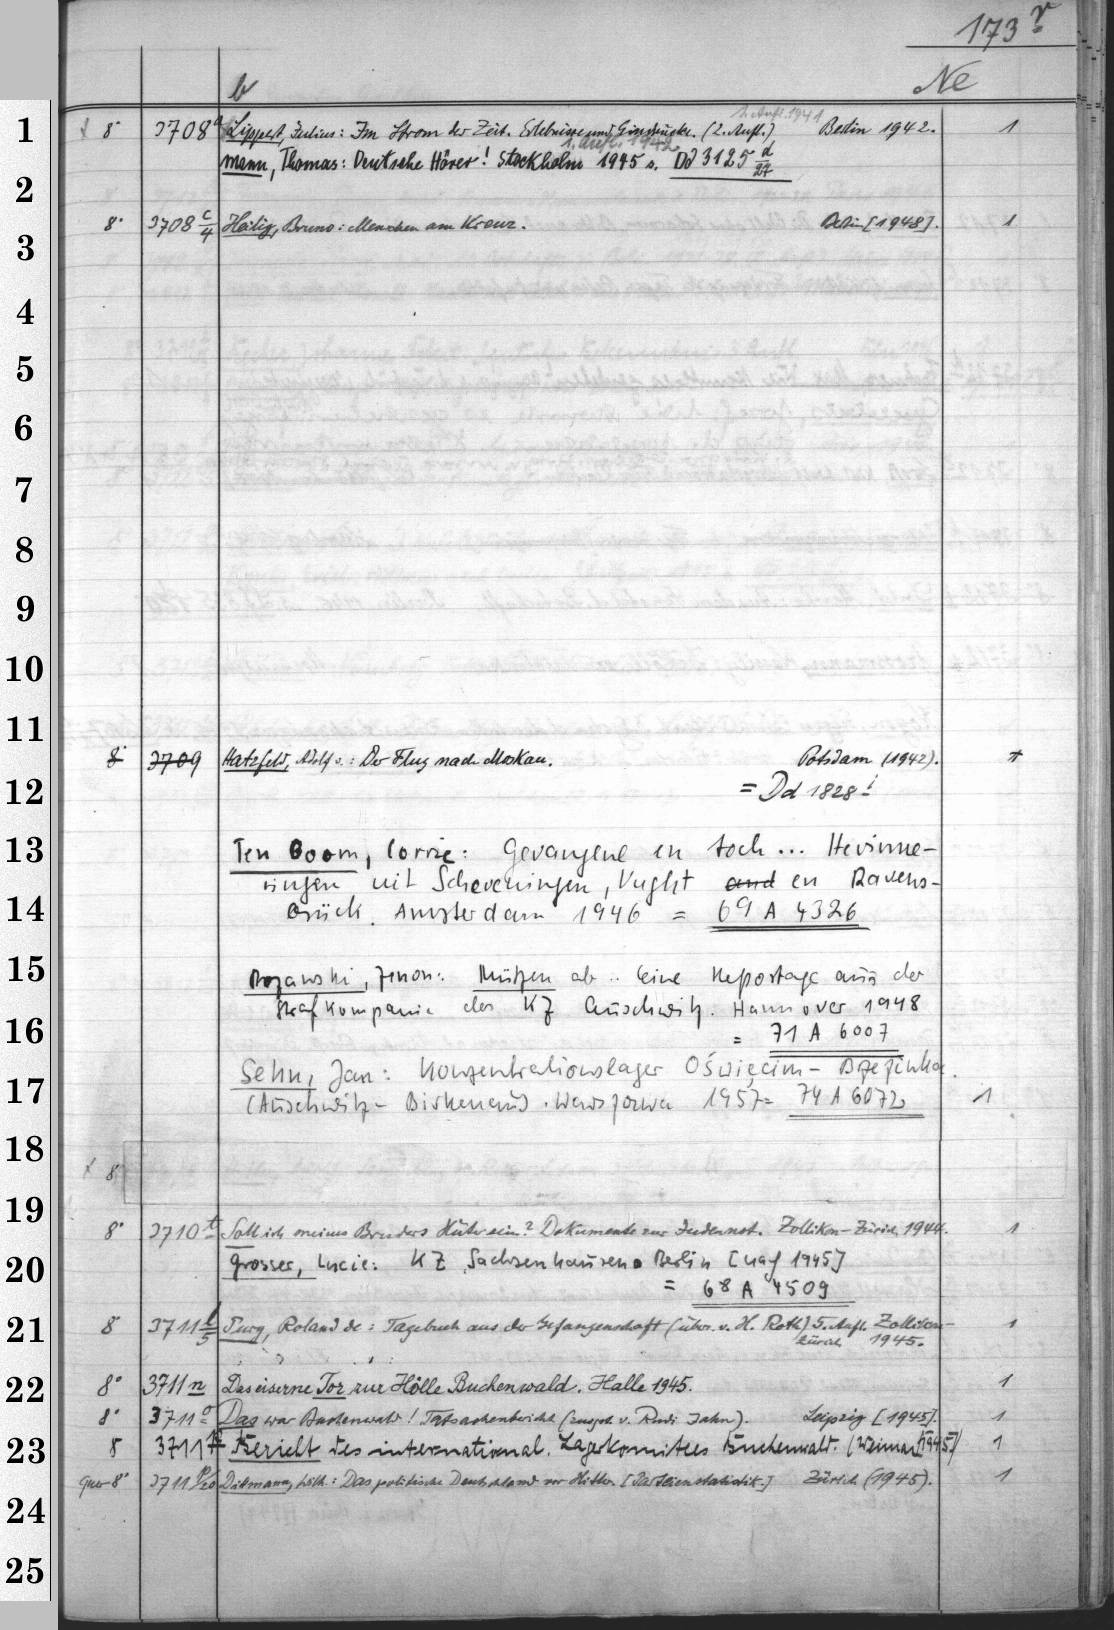 173 r
b Ne
1. Aufl. 1941
1 8° 3708 a Lippert, Julius: Im Strom der Zeit. Erlebnisse und Eindrücke. (2. Aufl.) Berlin 1942. 1
1. Aufl. 1942
Mann, Thomas: Deutsche Hörer! Stockholm 1945 s. Dd 3125 d/27
2
8° 3708 c/4 Heilig, Bruno: Menschen am Kreuz. Berlin [1948]. 1
3
4
5
6
7
8
9
10
11
8° 3709 Hatzfeld, Adolf v.: Der Flug nach Moskau. Potsdam (1942).
12 = Dd 1828 i
13 Ten Boom, Corrie: Gevangene en toch... Herinne-
ringen uit Scheveningen, Vught and en Ravens-
14 brück. Amsterdam 1946 = 69 A 4326
15 Rozanski, Zenon: Mützen ab.. Eine Reportage aus der
Strafkompanie des KZ Auschwitz. Hannover 1948
16 = 71 A 6007
Sehn, Jan: Konzentrationslager Oświęcim - Brzezinka.
17 (Auschwitz - Birkenau). Warszawa 1957 = 74 A 6072 1
18
8°
19
8° 3710 t Soll ich meines Bruders Hüter sein? Dokumente zur Judennot. Zollikon-Zürich 1944. 1
20 Grosser, Lucie: KZ Sachsenhausen. Berlin [nach 1945]
= 68 A 4509
21 8° 3711 l/5 Purg, Roland de: Tagebuch aus der Gefangenschaft (übers. v. H. Roth) 5. Aufl. Zollikon- 1
Zürich 1945.
22 8° 3711 n Das eiserne Tor zur Hölle Buchenwald. Halle 1945. 1
8° 3711 o Das war Buchenwald! Tatsachenbericht (zusgest. v. Rudi Jahn). Leipzig [1945]. 1
23 8 3711 Bericht des international. Lagerkomitees Buchenwald. (Weimar [1945]) 1
quer-8° 3711 p/20 Dittmann, Wilh.: Das politische Deutschland vor Hitler. [Parteienstatistik.] Zürich (1945). 1
24
25